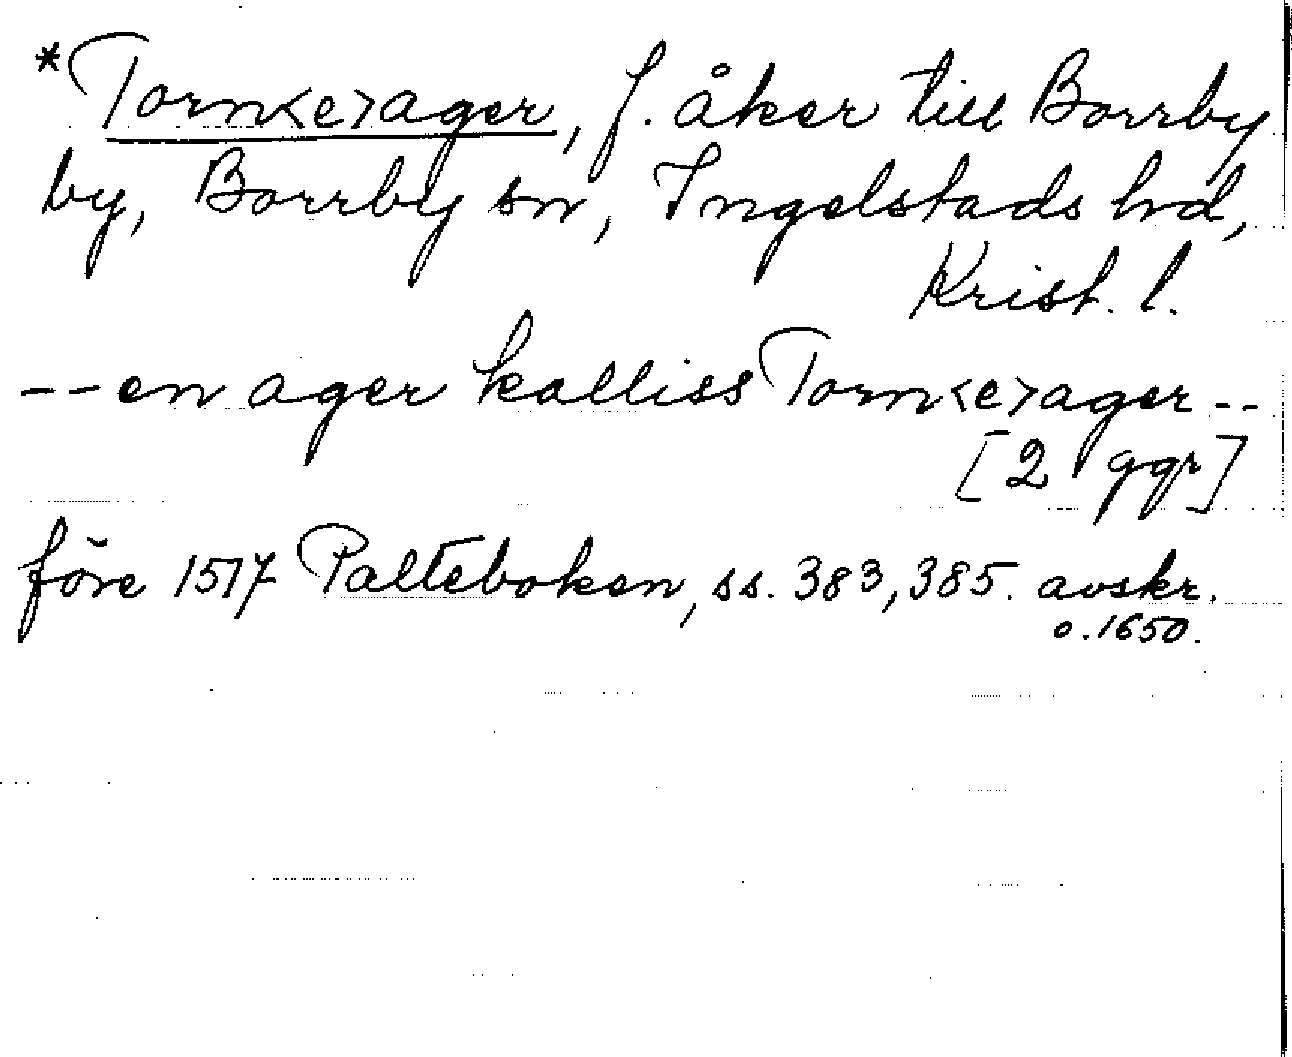 *Torn<e>ager, f. åker till Borrby
by, Borrby sn, Ingelstads hd,
Krist. l.
--en ager kalliss Torn<e>ager--
[2 ggr]
före 1517 Palteboken, ss. 383, 385. avskr.
o. 1650.